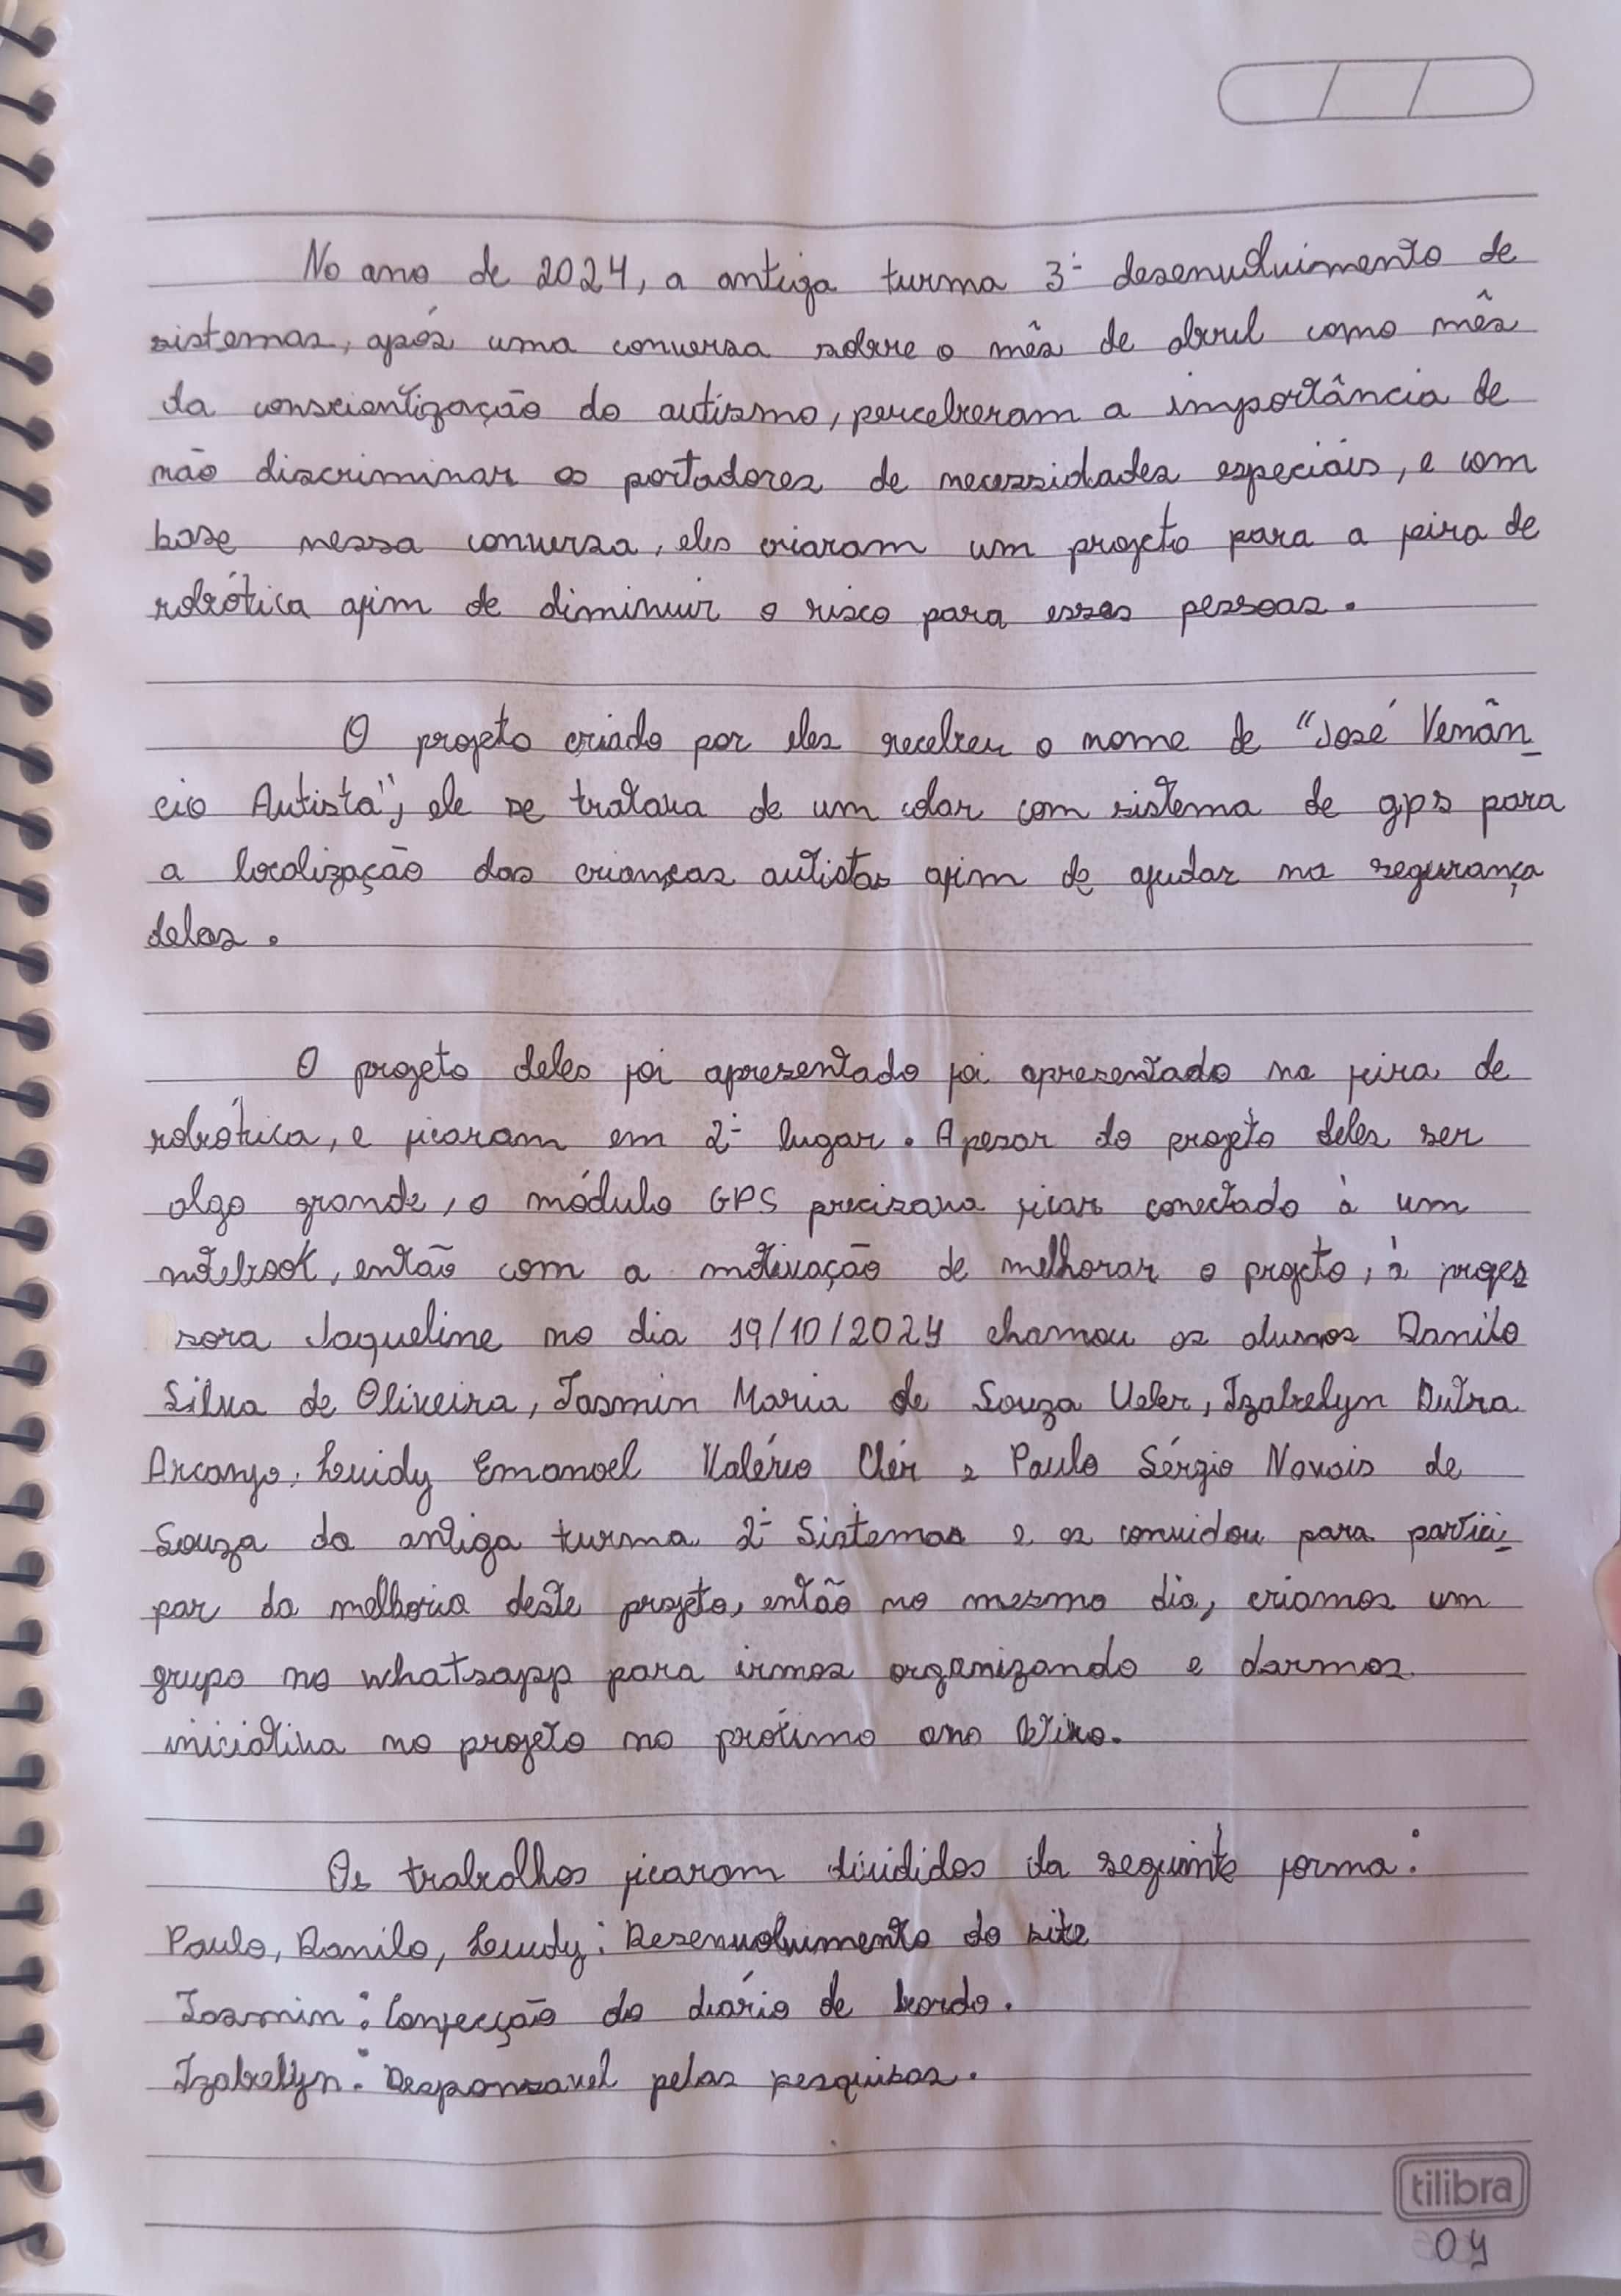 No ano de 2024, a antiga turma 3º desenvolvimento de
sistemas, após uma conversa sobre o mês de abril como mês
da conscientização do autismo, perceberam a importância de
não discriminar os portadores de necessidades especiais, e com
base nessa conversa, eles criaram um projeto para a feira de
robótica afim de diminuir o risco para essas pessoas.
O projeto criado por eles recebeu o nome de "José Venân-
cio Autista", ele se tratava de um colar com sistema de gps para
a localização das crianças autistas afim de ajudar na segurança
delas.
O projeto deles foi apresentado foi apresentado na feira de
robótica, e ficaram em 2º lugar. Apesar do projeto deles ser
algo grande, o módulo GPS precisava ficar conectado à um
notebook, então com a motivação de melhorar o projeto, à profes
sora Jaqueline no dia 19/10/2024 chamou os alunos Danilo
Silva de Oliveira, Iasmin Maria de Souza Ueler, Izabelyn Dutra
Arcanjo, Luidy Emanoel Valério Clér e Paulo Sérgio Novais de
Souza da antiga turma 2º Sistemas e os convidou para partici-
par da melhoria deste projeto, então no mesmo dia, criamos um
grupo no whatsapp para irmos organizando e darmos
iniciativa no projeto no prótimo ano letivo.
Os trabalhos ficaram divididos da seguinte forma:
Paulo, Danilo, Luidy: Desenvolvimento do site
Iasmin: Confecção do diário de bordo.
Izabelyn: Responsavel pelas pesquisas.
tilibra
04